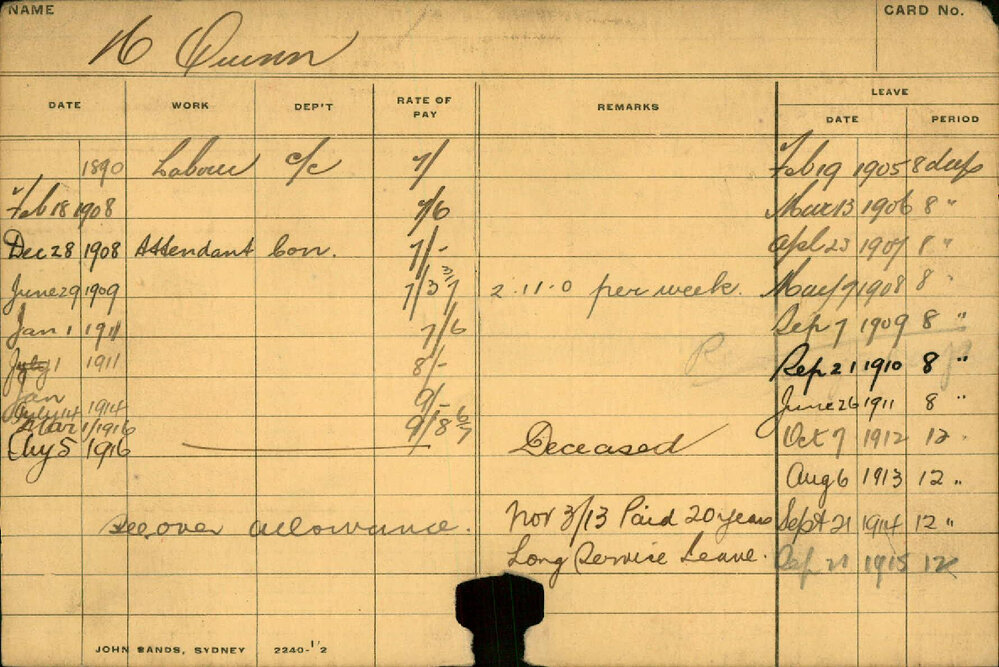 NAME CARD No.
H Quinn
DATE WORK DEP'T RATE OF PAY REMARKS LEAVE
DATE PERIOD
1890 Labour c/c 7/ Feb 19 1905 8 days
Feb 18 1908 7/6 Mar 13 1906 8 "
Dec 28 1908 Attendant Con. 7/- Apl 23 1907 8 "
June 29 1909 7/3 2.11.0 per week. May 7 1908 8 "
Jan 1 1911 7/6 Sep 7 1909 8 "
July 1 1911 8/- R Sep 21 1910 8 "
Jan
July 14 1914 9/- June 26 1911 8 "
Mar 1/1916 9/8 Oct 7 1912 12
Aug 5 1916 Deceased
Aug 6 1913 12 "
See over allowance. Nov 3/13 Paid 20 years Sept 21 1914 12 "
Long Service Leave. Sep 21 1915 12
JOHN SANDS, SYDNEY 2240-